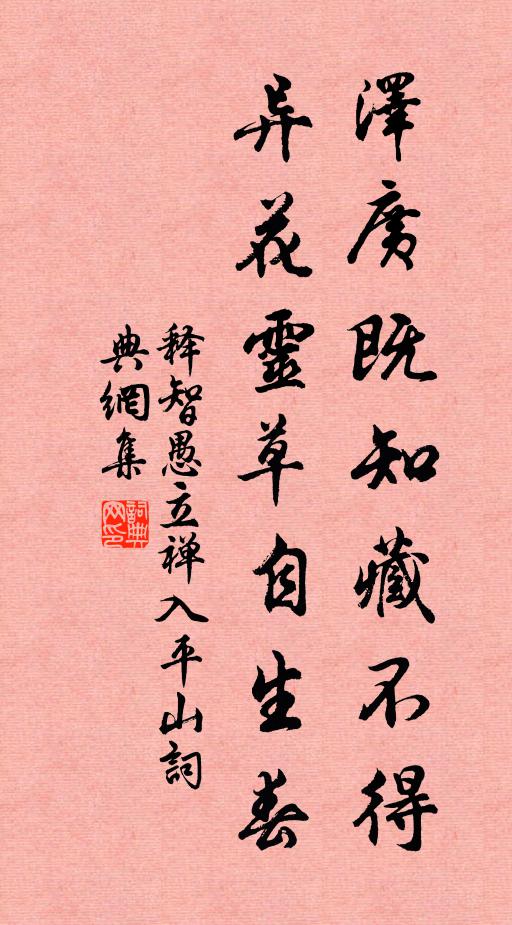 澤廣既知藏不得
异花靈草自生春
释智愚立禅入平山詞
典網集
詞典網印